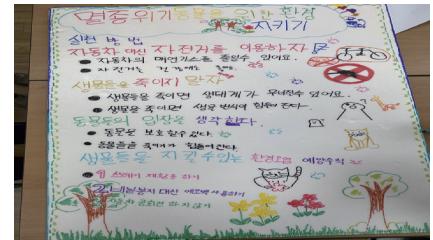 멸종위기동물을 위한 환경
지키기
실천 방법
자동차 대신 자전거를 이용하자
● 자동차의 매연가스를 줄일수 있어요.
● 자전거는 건강에도
생물들을 죽이지 말자
● 생물들을 죽이면 생태계가 무너질수 있어요.
● 생물을 죽이면 생물 번식이 힘들어 진다.
동물들의 입장을 생각한다.
● 동물을 보호할수 있다.
● 동물들을 죽이기 힘들어진다.
생물들을 지킬수있는 환경오염 예방수칙
● 쓰레기 재활용 하기
비닐봉지 대신 에코백 사용하기
하지 않기